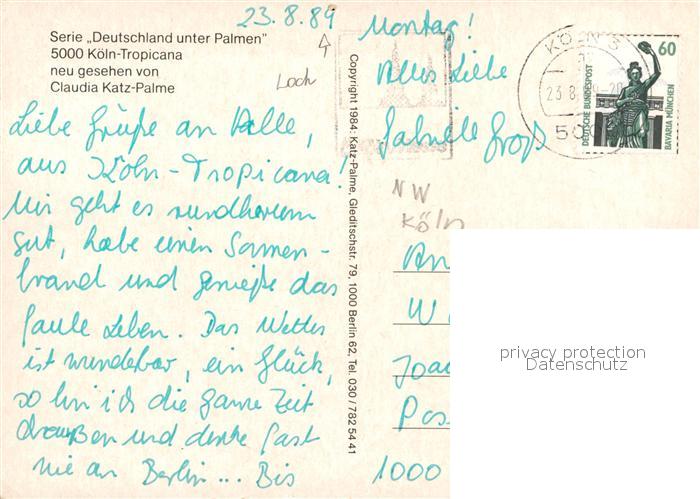 23.8.89
Serie „Deutschland unter Palmen“
5000 Köln-Tropicana
neu gesehen von
Claudia Katz-Palme
Loch
Liebe Grüße an Alle,
aus Köln-Tropicana!
Mir geht es rundherum
gut, habe einen Sonnen-
brand und genieße das
faule Leben. Das Wetter
ist wunderbar, ein Glück,
so bin ich die ganze Zeit
draußen und denke fast
nie an Berlin... Bis
Montag!
Alles Liebe
Gabriele Groß
Copyright 1984: Katz-Palme, Gleditschstr. 79, 1000 Berlin 62, Tel. 030/782 54 41
KÖLN
23.8.
500
60
DEUTSCHE BUNDESPOST
BAVARIA MÜNCHEN
NW
Köln
An
W
Joa
Pos
1000
privacy protection
Datenschutz